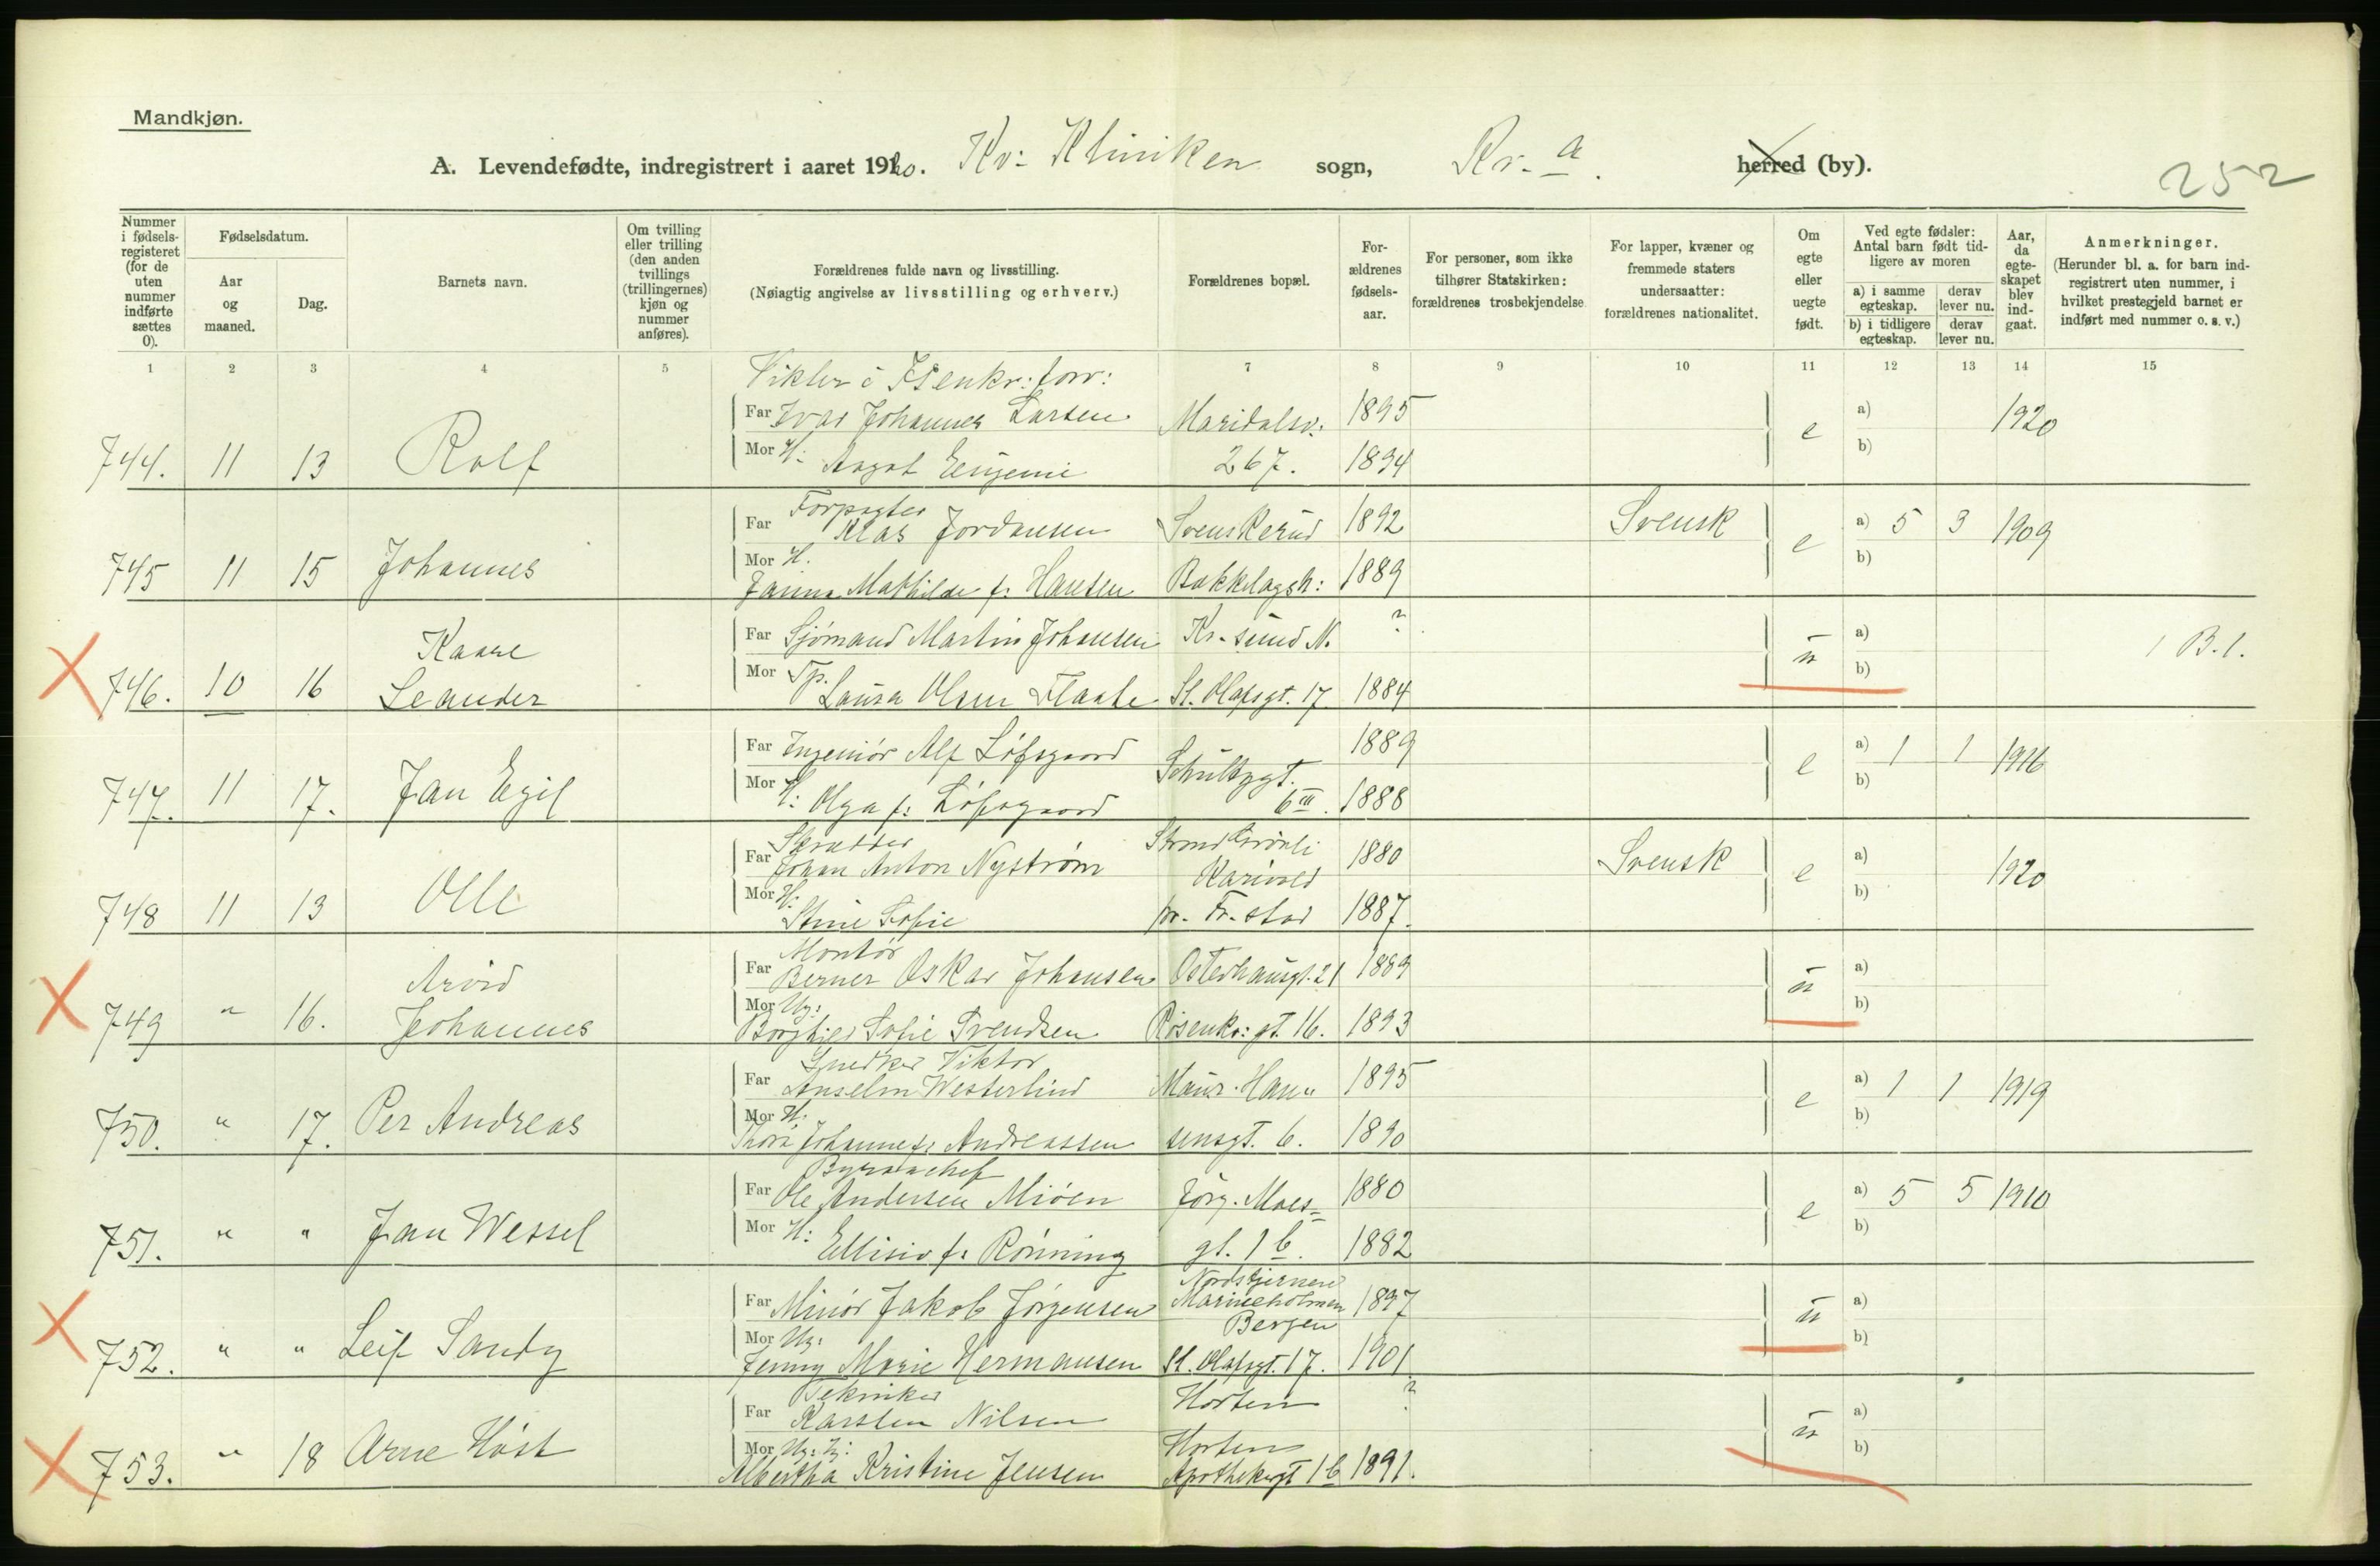 Mandkjøn.
A. Levendefødte, indregistrert i aaret 1920. Kv: Kliniken sogn, Kr.a. herred (by).
252
Nummer i fødsels-registeret (for de uten nummer indførte sættes 0).
Fødselsdatum.
Aar og maaned.
Dag.
Barnets navn.
Om tvilling eller trilling (den anden tvillings (trillingernes) kjøn og nummer anføres).
Forældrenes fulde navn og livsstilling.
(Nøiagtig angivelse av livsstilling og erhverv.)
Forældrenes bopæl.
For-ældrenes fødsels-aar.
For personer, som ikke tilhører Statskirken: forældrenes trosbekjendelse.
For lapper, kvæner og fremmede staters undersaatter: forældrenes nationalitet.
Om egte eller uegte født.
Ved egte fødsler: Antal barn født tid-ligere av moren
a) i samme egteskap. derav lever nu.
b) i tidligere egteskap. derav lever nu.
Aar, da egte-skapet blev ind-gaat.
Anmerkninger.
(Herunder bl. a. for barn ind-registrert uten nummer, i hvilket prestegjeld barnet er indført med nummer o. s. v.)
1 2 3 4 5 7 8 9 10 11 12 13 14 15
Vikler i
Far Ivar Johannes Larsen Maridalsv: 1895 a)
744. 11 13 Rolf e 1920
Mor H: Aagot Eugenie 267. 1894 b)
Forpagter
Far Klas Jordansen Svenskerud 1892 Svensk a) 5 3 1909
745 11 15 Johannes e
Mor H. b)
Janna Mathilde f: Hansen Bækkelagsh: 1889
Far Sjømand Martin Johansen Kr-sund N. ? a)
Kaare ü 1 B.1.
746. 10 16 Leander
Mor Tp. Laura Olsen Flaate St. Olafsgt. 17 1884 b)
Far Ingeniør Alf Løfsgaard Schultzgt. 1889 a) 1 1 1916
747. 11 17. Jan Egil e
Mor H: Olga f: Løfsgaard 6 III. 1888 b)
Skrædder
Far Johan Anton Nystrøm 1880 Svensk a)
748 11 13 Olle e 1920
Mor H: Stine Sofie pr. Fr.stad 1887. b)
Montør
Far Berner Oskar Johansen Osterhausgt. 21 1889 a)
Arvid
749 " 16. Johannes ü
Mor Ug: b)
Borghild Sofie Svendsen Rosenkr: gt. 16. 1893
Snedker Viktor
Far Anselm Westerlind Maur. Han= 1895 a) 1 1 1919
750. " 17. Per Andreas e
Mor H: b)
Thora Johanne f: Andreassen sensgt. 6. 1890
Byraachef
Far Ole Andersen Mjøen Jørg. Moes= 1880 a) 5 5 1910
751. " " Jan Wessel e
Mor H: Ellisiv f: Rønning gt. 1 b. 1882 b)
Nordstjernen
Far Minør Jakob Jørgensen Marineholmen 1897 a)
Bergen
752. " " Leif Sandy ü
Mor Ug: b)
Jenny Marie Hermansen St. Olafsgt. 17. 1901
Tekniker
Far Karsten Nilsen Horten ? a)
753. " 18 Arne Høst ü
Mor Ug: Horten b)
Albertha Kristine Jensen Apothekergt 1 b 1891.